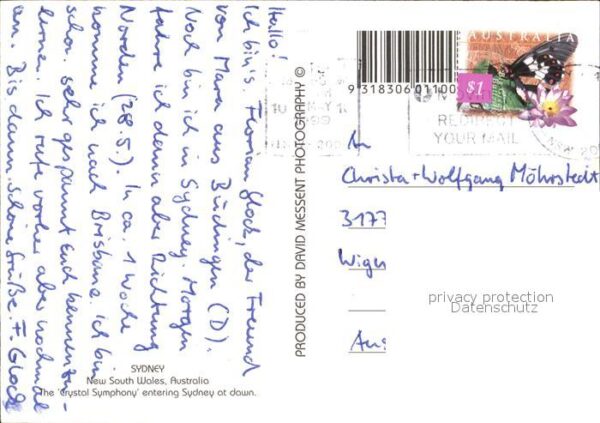 Hallo!
Ich bin's. Florian Glock, der Freund
von Mara aus Büdingen (D).
Noch bin ich in Sydney. Morgen
fahre ich dann aber Richtung
Norden (28.5.). In ca. 1 Woche
komme ich nach Brisbane. Ich bin
schon sehr gespannt Euch kennenzu-
lernen. Ich rufe vorher aber nochmal
an. Bis dann. Schöne Grüße F. Glock
SYDNEY
New South Wales, Australia
The 'Crystal Symphony' entering Sydney at dawn.
PRODUCED BY DAVID MESSENT PHOTOGRAPHY ©
9 318306 01100
AUSTRALIA
$1
YOUR MAIL
An
Christa + Wolfgang Möhrstedt
3177
privacy protection
Datenschutz